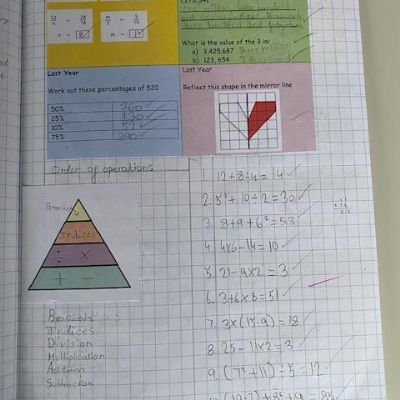 n = 8
What is the value of the 3 in:
a) 3,425,687 three million
b) 123,654 3 thousand
Last Year
Work out these percentages of 520
50% 260
25% 130
10% 52
75% 390
Last Year
Reflect this shape in the mirror line
Order of operations
Brackets
Indices
÷ ×
+ −
Brackets
Indices
Division
Multiplication
Addition
Subtraction
1. 12+8÷4=14
2. 5²+10÷2=30
3. 8+9+6²=53
4. 4×6-14=10
5. 21-9×2=3
6. 3+6×8=51
7. 3×(15-9)=18
8. 25-11×2=3
9. (7²+11)÷5=12